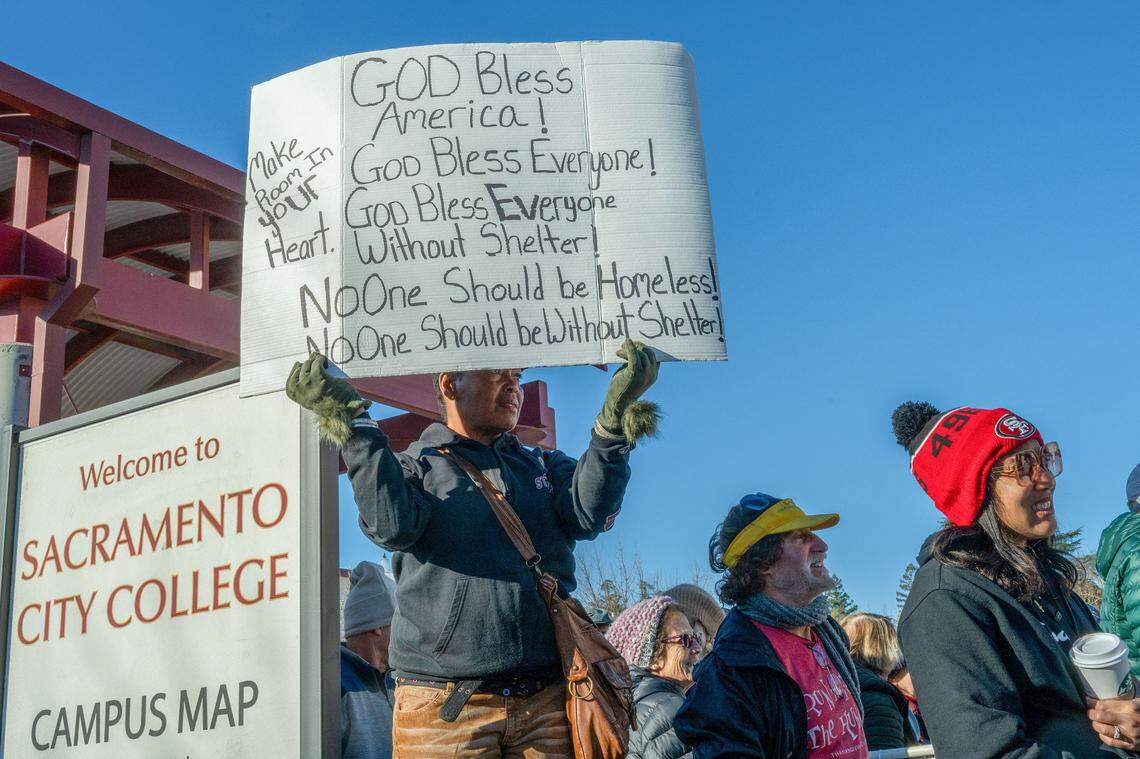 GOD Bless
America!
God Bless Everyone!
God Bless EVeryone
Without Shelter!
NoOne Should be Homeless!
NoOne Should be Without Shelter!
Make
Room In
your
Heart.
Welcome to
SACRAMENTO
CITY COLLEGE
CAMPUS MAP
49E
SF
The